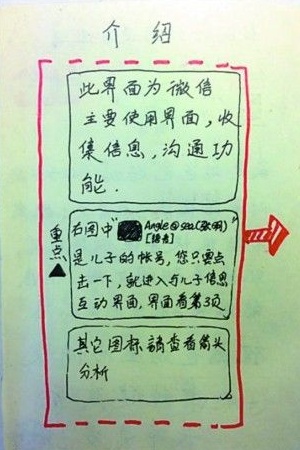 介绍
此界面为微信
主要使用界面,收
集信息,沟通功
能.
重点
右图中"Angle@sea(张明)"
[语音]
是儿子的帐号,您只要点
击一下,就进入与儿子信息
互动界面,界面看第3页
其它图标请查看箭头
分析